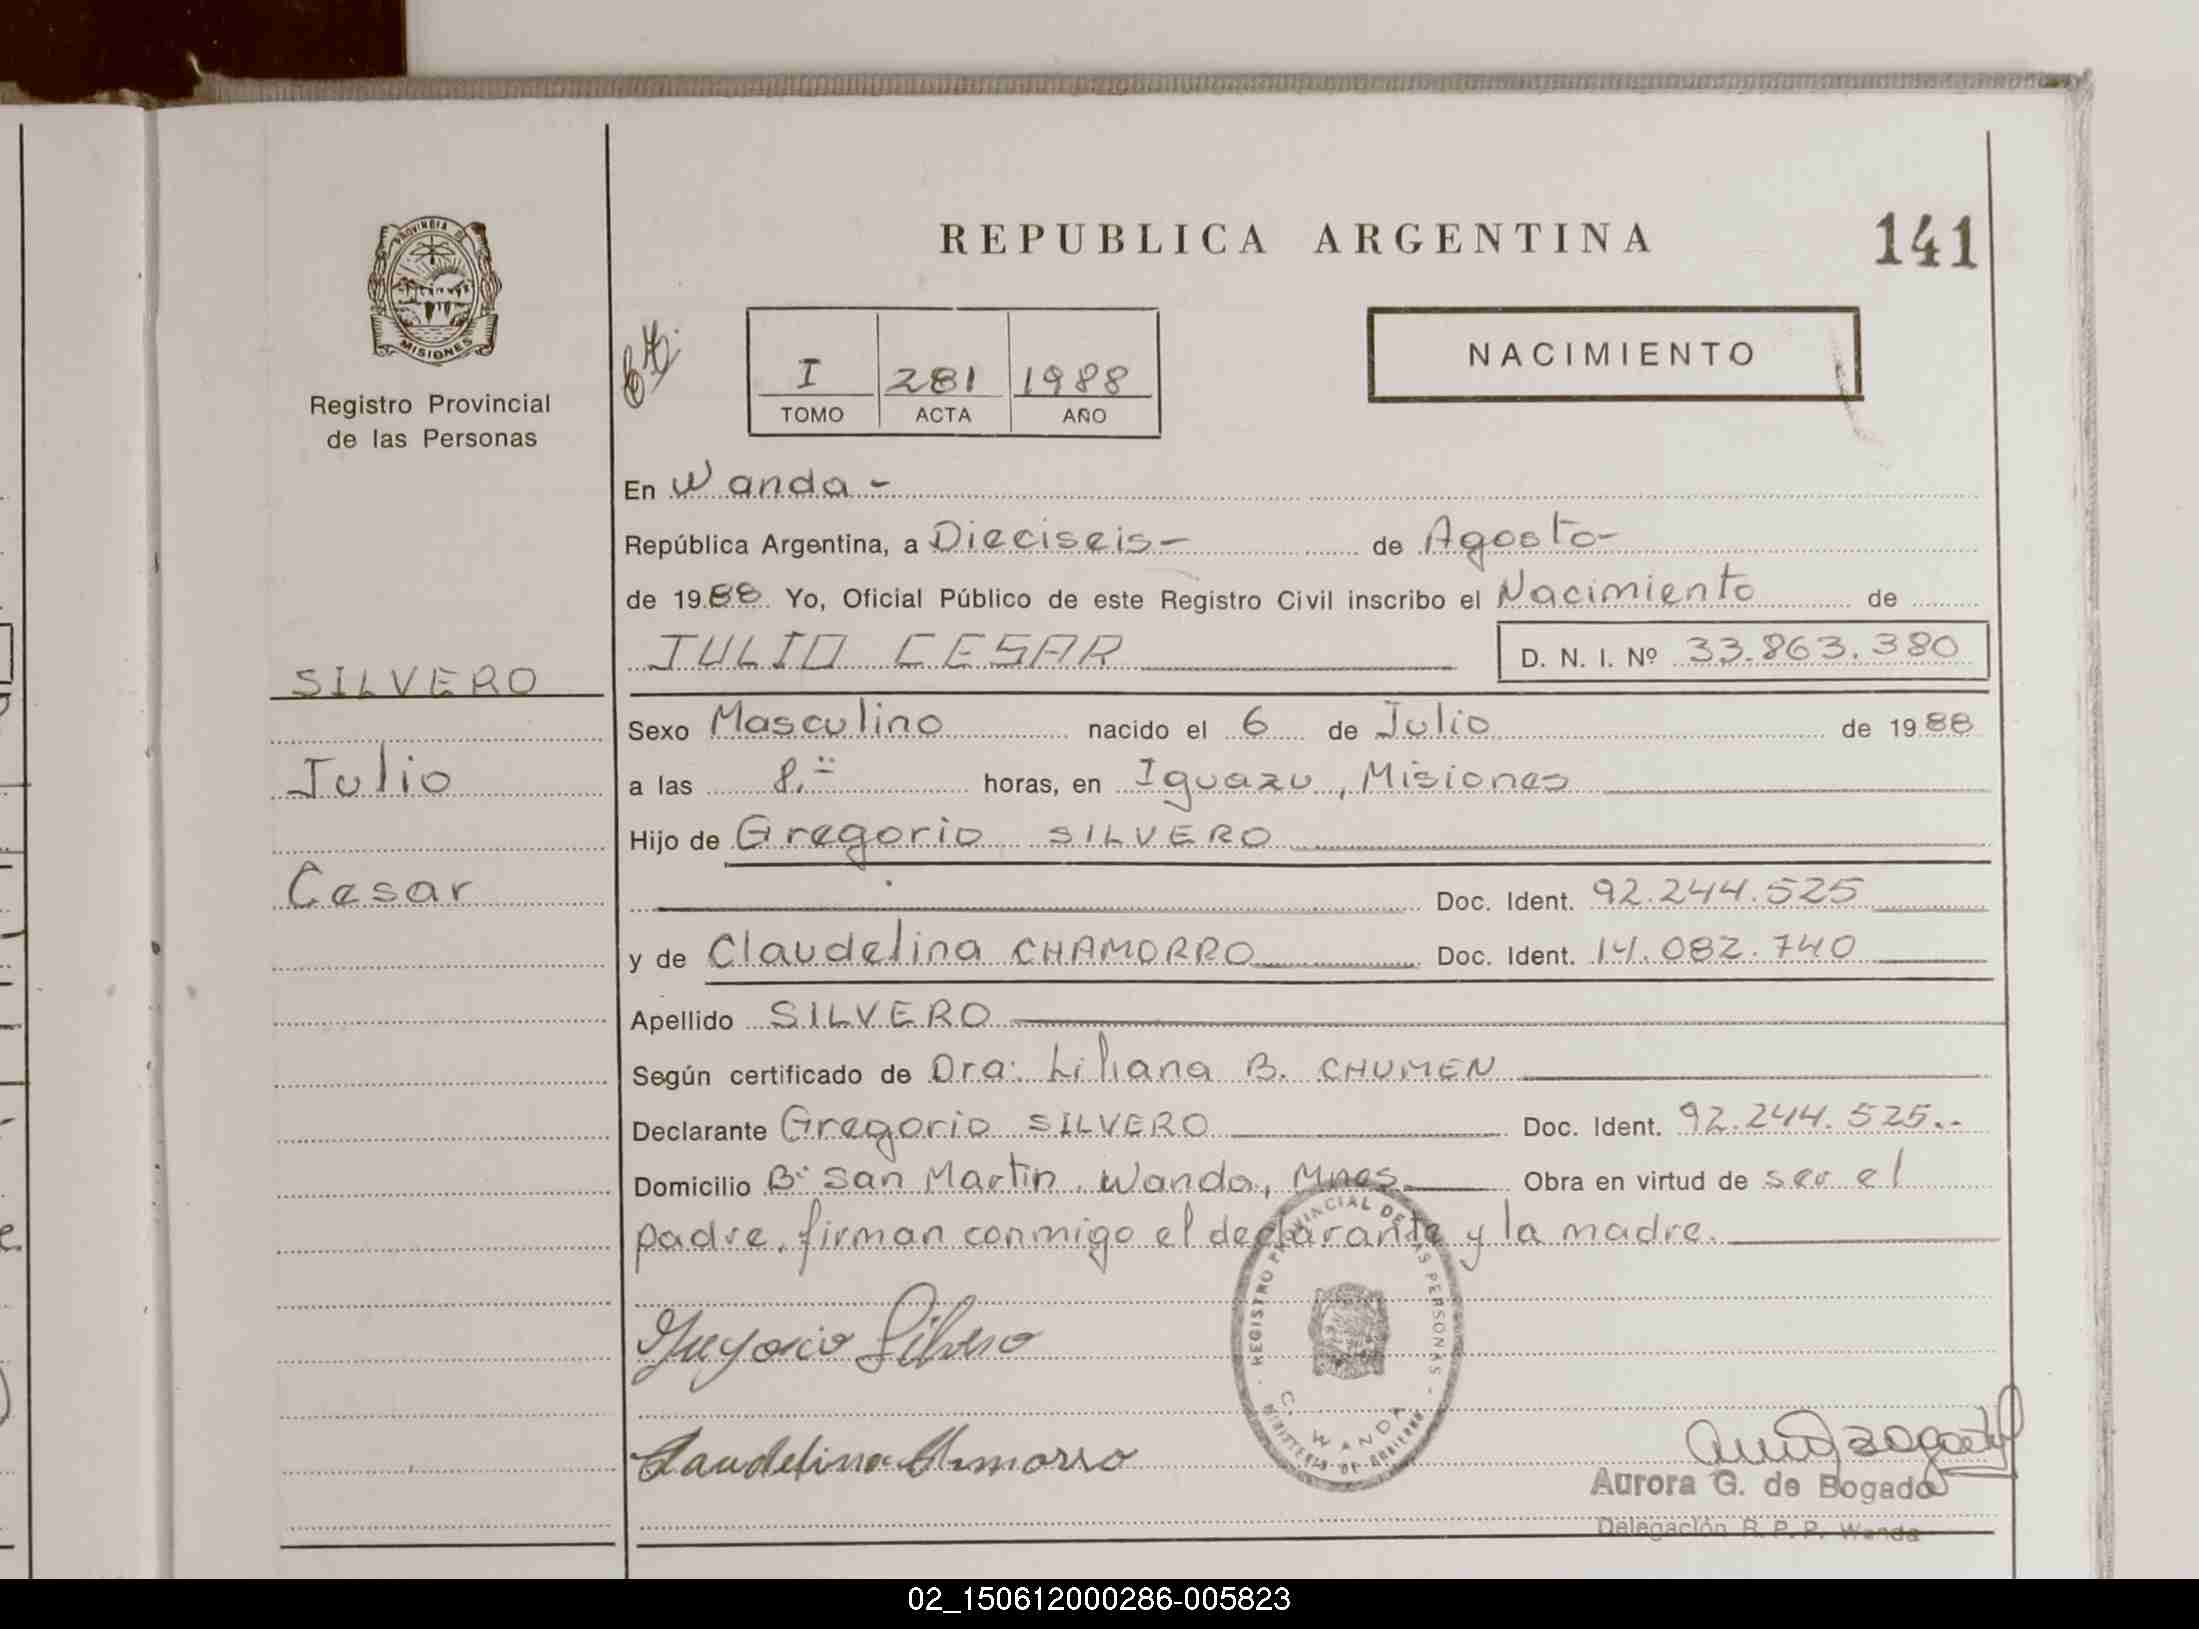 PROVINCIA DE
MISIONES
Registro Provincial
de las Personas
SILVERO
Julio
Cesar
REPUBLICA ARGENTINA
141
I 281 1988
TOMO ACTA AÑO
NACIMIENTO
En Wanda -
República Argentina, a Dieciseis - de Agosto -
de 1988 Yo, Oficial Público de este Registro Civil inscribo el Nacimiento de
JULIO CESAR D. N. I. Nº 33.863.380
Sexo Masculino nacido el 6 de Julio de 1988
a las 8.= horas, en Iguazu, Misiones
Hijo de Gregorio SILVERO
Doc. Ident. 92.244.525
y de Claudelina CHAMORRO Doc. Ident. 14.082.740
Apellido SILVERO
Según certificado de Dra: Liliana B. CHUMEN
Declarante Gregorio SILVERO Doc. Ident. 92.244.525.-
Domicilio Bº San Martin, Wanda, Mnes. Obra en virtud de ser el
padre, firman conmigo el declarante y la madre.
REGISTRO PROVINCIAL DE LAS PERSONAS
C. WANDA
MINISTERIO DE GOBIERNO
Gregorio Silvero
Claudelina Chamorro
Aurora G. de Bogado
Delegación R. P. P. Wanda
02_150612000286-005823